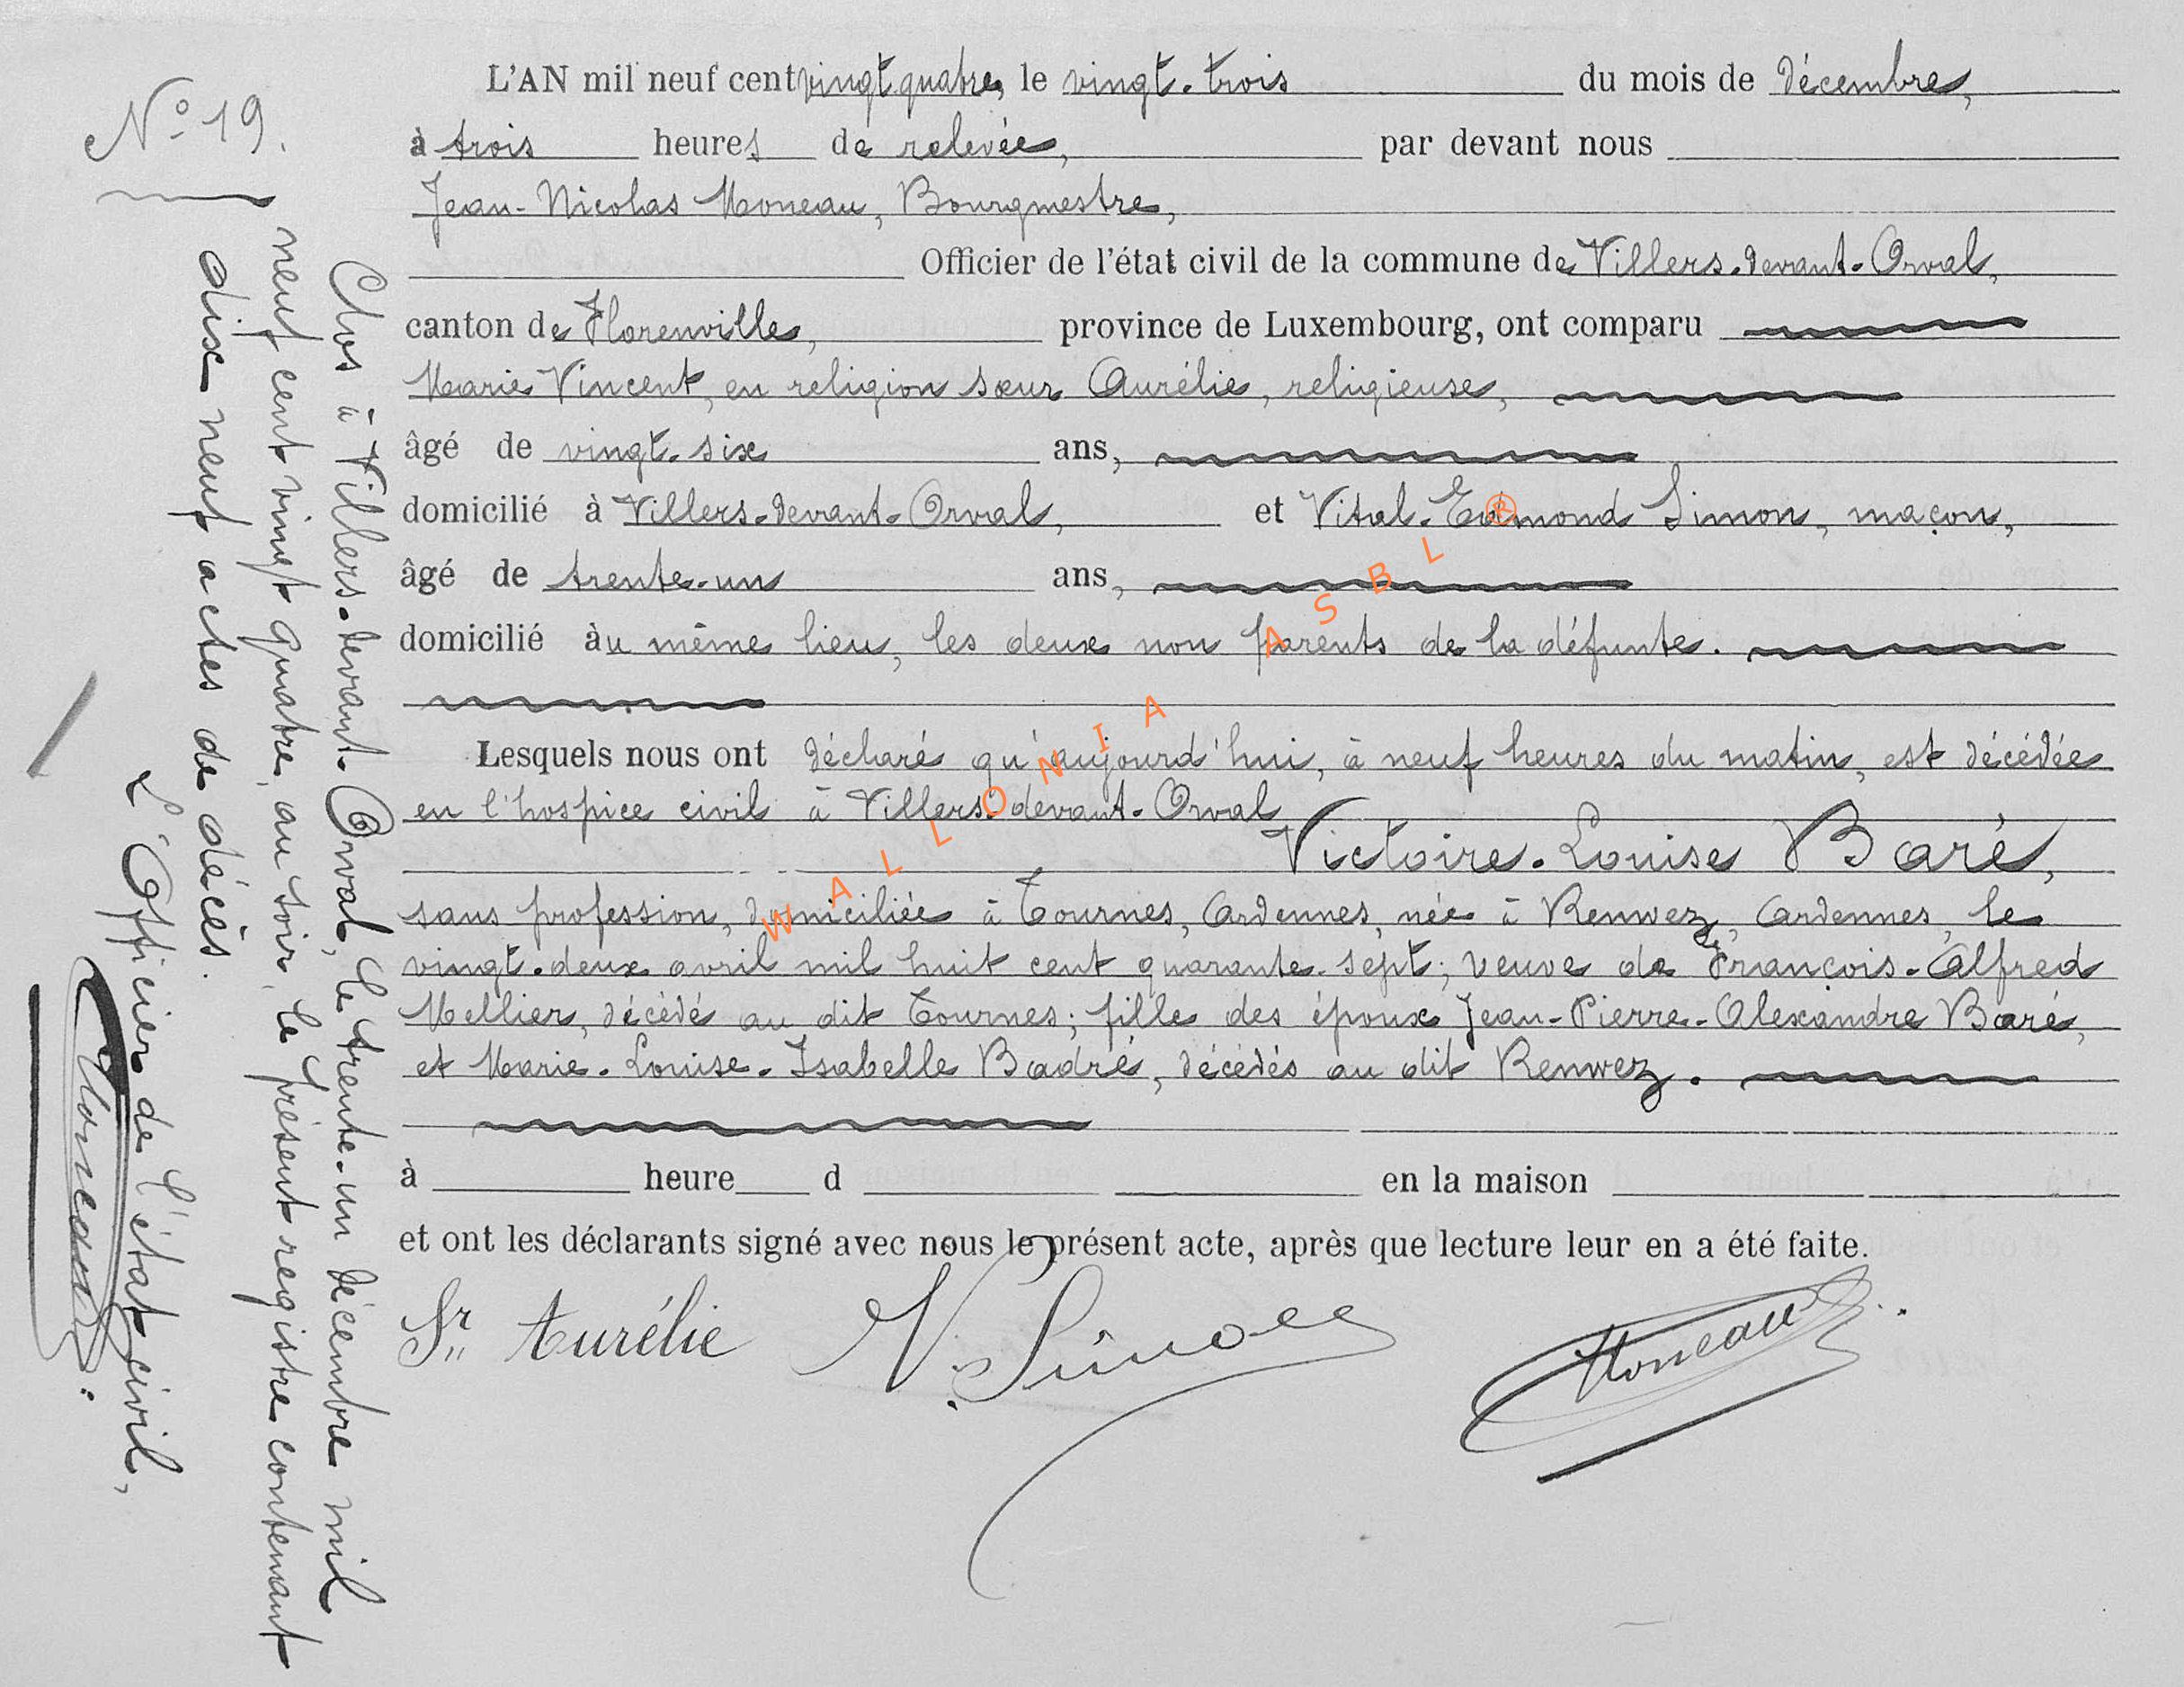 N° 19.
L'AN mil neuf cent vingt quatre, le vingt-trois du mois de décembre,
à trois heures de relevée, par devant nous
Jean-Nicolas Moneau, Bourgmestre,
Officier de l'état civil de la commune de Villers-devant-Orval,
canton de Florenville, province de Luxembourg, ont comparu
Marie Vincent, en religion sœur Aurélie, religieuse,
âgé de vingt-six ans,
domicilié à Villers-devant-Orval, et Vital-Edmond Simon, maçon,
âgé de trente-un ans,
domicilié àu même lieu, les deux non parents de la défunte.
Lesquels nous ont déclaré qu'aujourd'hui, à neuf heures du matin, est décédée
en l'hospice civil à Villers-devant-Orval
Victoire-Louise Baré,
sans profession, domiciliée à Tournes, Ardennes, née à Renwez, Ardennes, le
vingt-deux avril mil huit cent quarante-sept; veuve de François-Alfred
Mellier, décédé au dit Tournes; fille des époux Jean-Pierre-Alexandre Baré,
et Marie-Louise-Isabelle Badré, décédés au dit Renwez.
à heure d en la maison
et ont les déclarants signé avec nous le présent acte, après que lecture leur en a été faite.
Sr Aurélie V. Simon Moneau
Clos à Villers-devant-Orval, le trente-un décembre mil
neuf cent vingt quatre, au soir, le présent registre contenant
dix neuf actes de décès.
L'Officier de l'état civil,
Moneau
WALLONIA ASBL ®